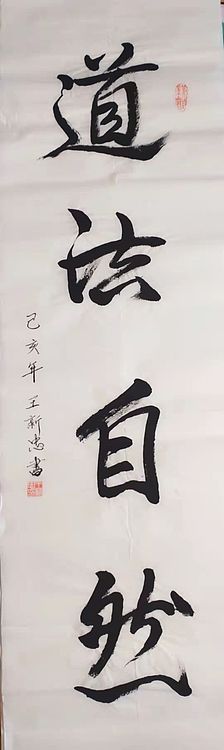 道法自然
己亥年 王新忠書